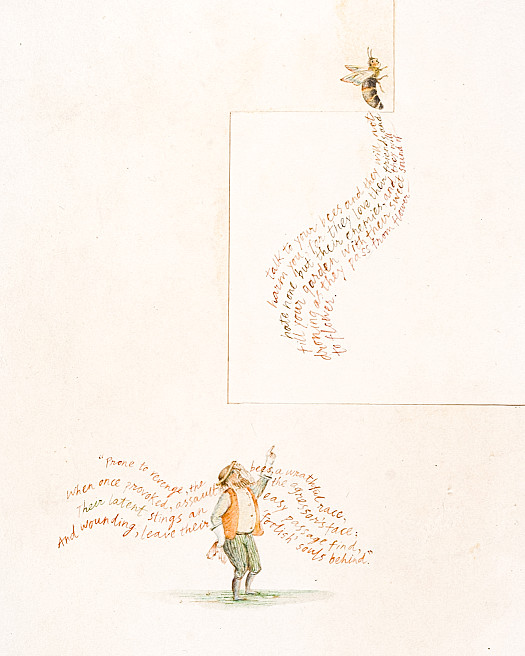 Talk to your bees and they will not
harm you for they love their friends and
hate none but their enemies and they
fill your garden with their sweet sound of
droning as they pass from flower
to flower.
"Prone to revenge, the bees, a wrathful race,
When once provoked, assault the agressors face:
Their latent stings an easy passage find,
And wounding, leave their foolish souls behind."